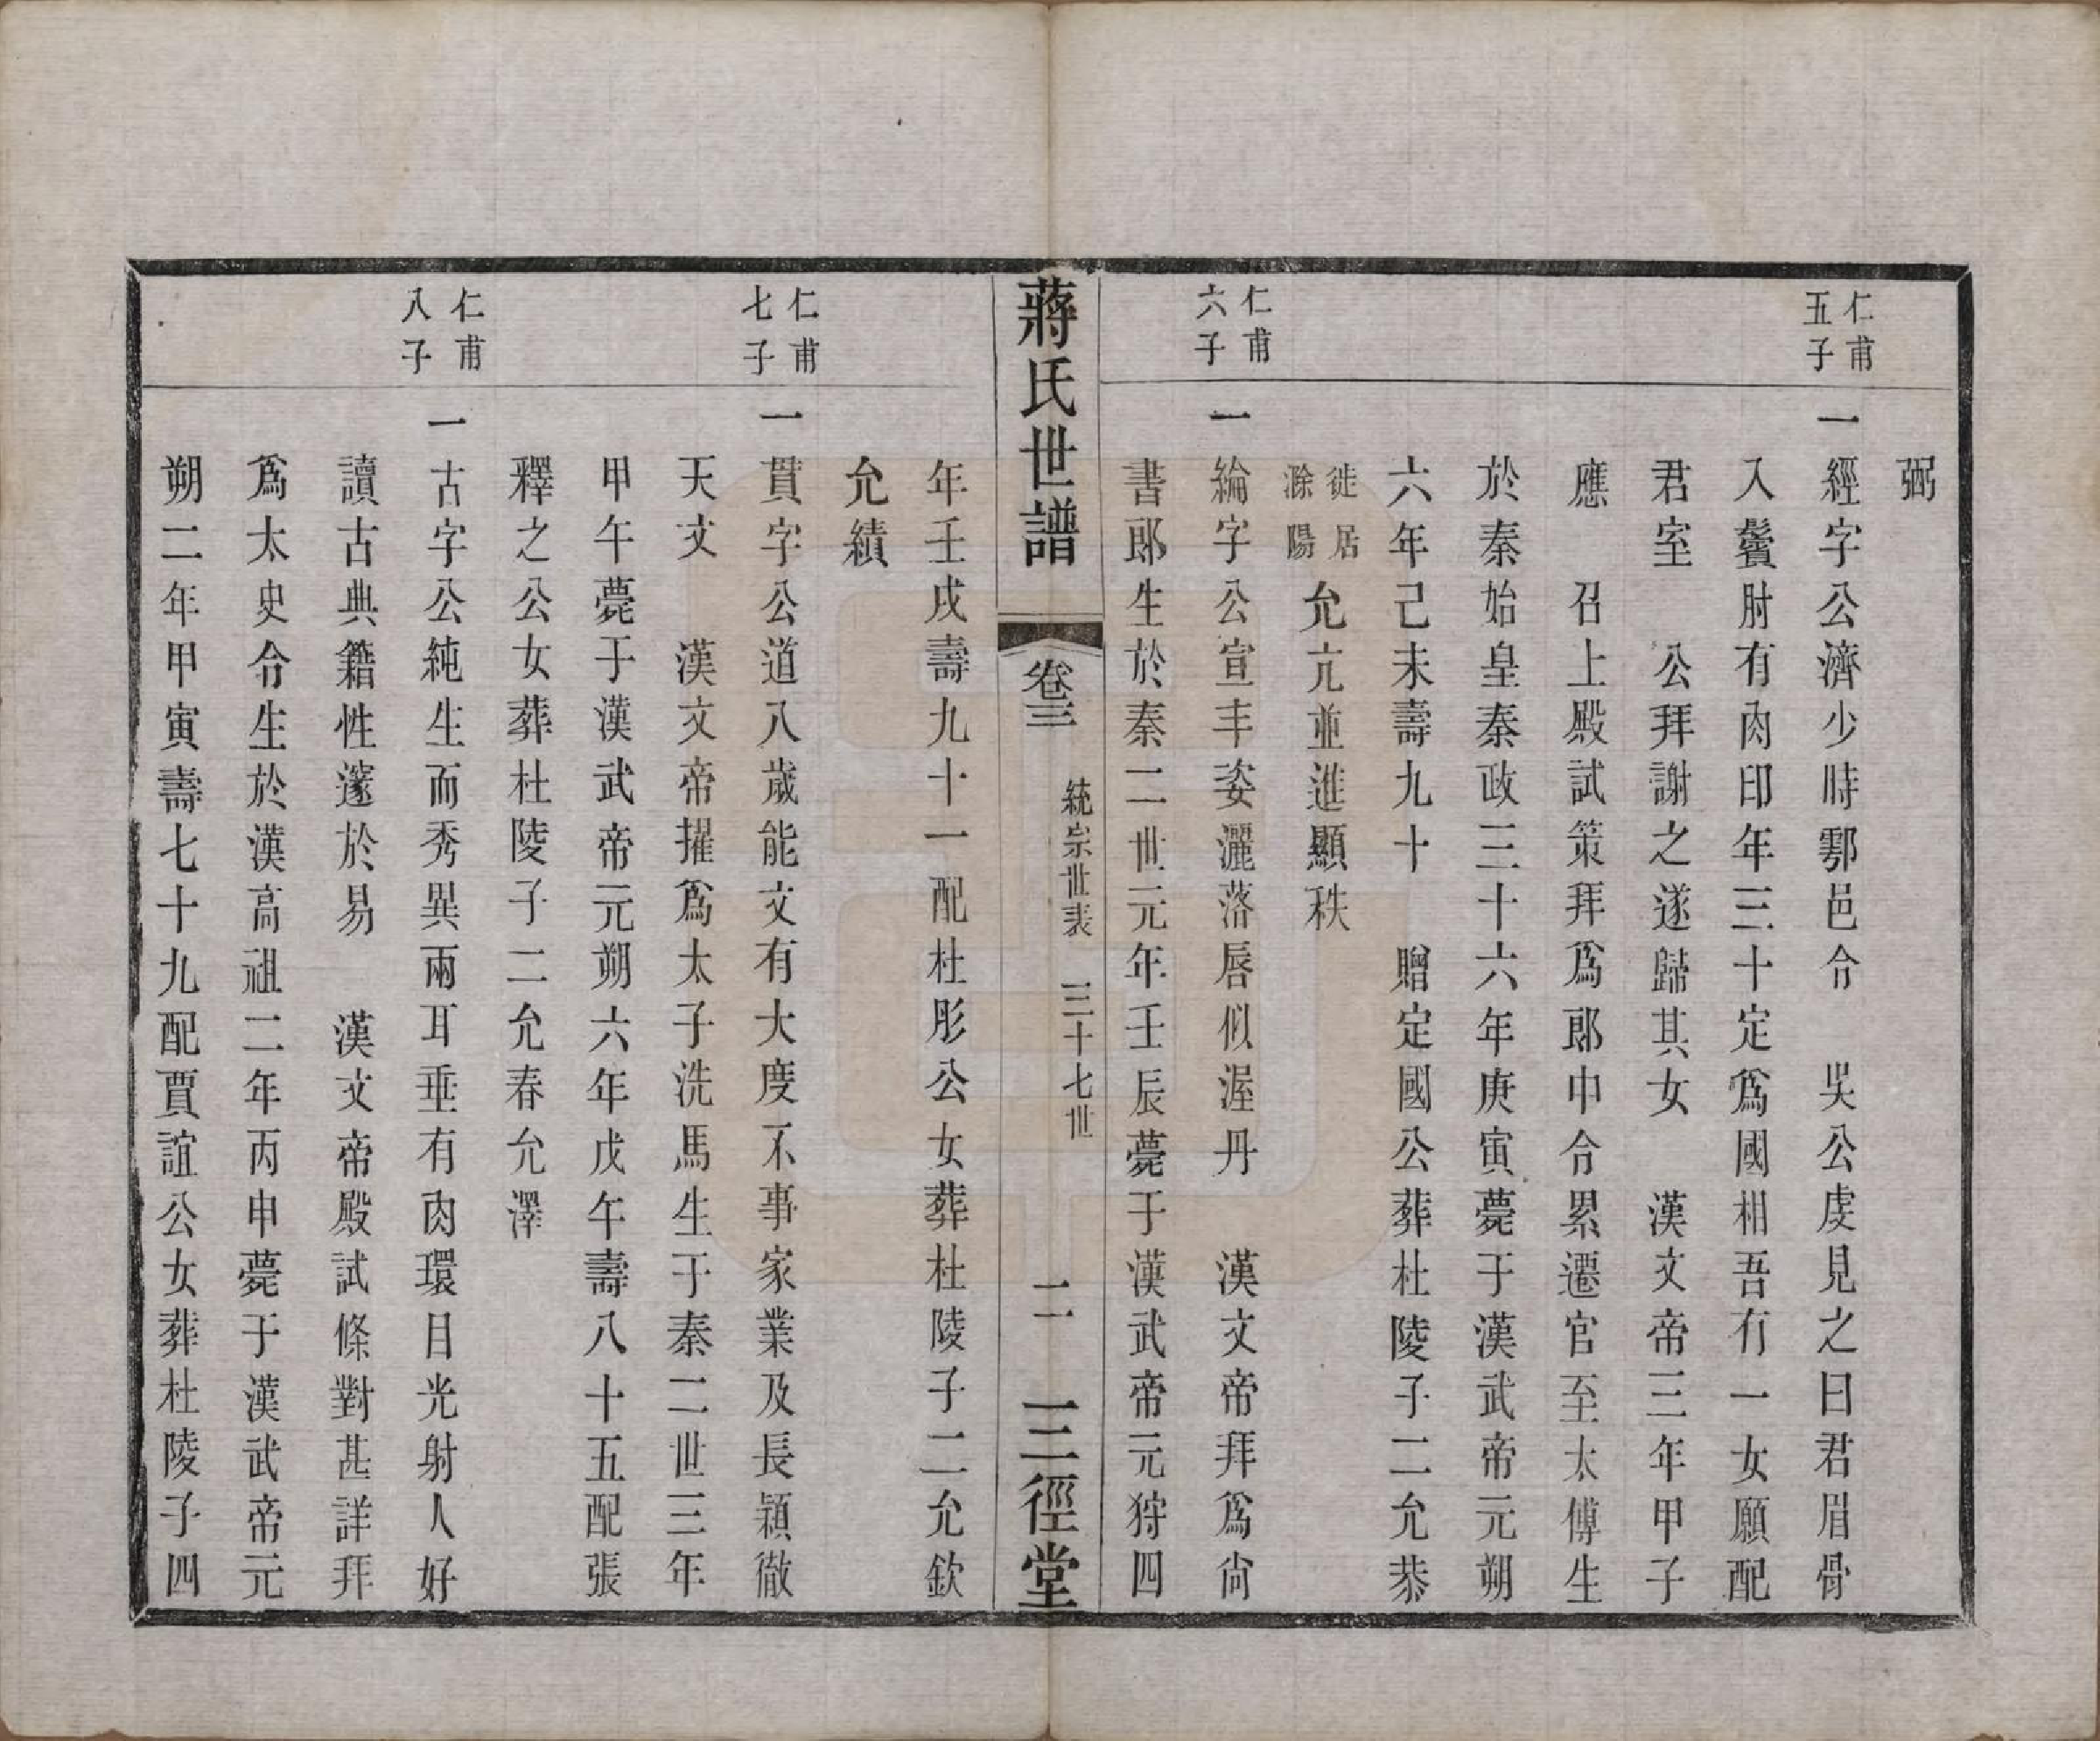 弼
仁甫
五子
一經字公濟少時鄠邑令　吳公虔見之曰君眉骨
入鬢肘有肉印年三十定爲國相吾有一女願配
君室　公拜謝之遂歸其女　漢文帝三年甲子
應　召上殿試策拜爲郎中令累遷官至太傅生
於秦始皇秦政三十六年庚寅薨于漢武帝元朔
六年己未壽九十　贈定國公葬杜陵子二允恭
徙居
滁陽
允亢並進顯秩
仁甫
六子
一綸字公宣丰姿灑落唇似渥丹　漢文帝拜爲尙
書郎生於秦二世元年壬辰薨于漢武帝元狩四
蔣氏世譜
卷三
統宗世表　三十七世
二
三徑堂
年壬戌壽九十一配杜彤公女葬杜陵子二允欽
允績
仁甫
七子
一貫字公道八歲能文有大度不事家業及長穎徹
天文　漢文帝擢爲太子洗馬生于秦二世三年
甲午薨于漢武帝元朔六年戊午壽八十五配張
釋之公女葬杜陵子二允春允澤
仁甫
八子
一古字公純生而秀異兩耳垂有肉環目光射人好
讀古典籍性邃於易　漢文帝殿試條對甚詳拜
爲太史令生於漢高祖二年丙申薨于漢武帝元
朔二年甲寅壽七十九配賈誼公女葬杜陵子四